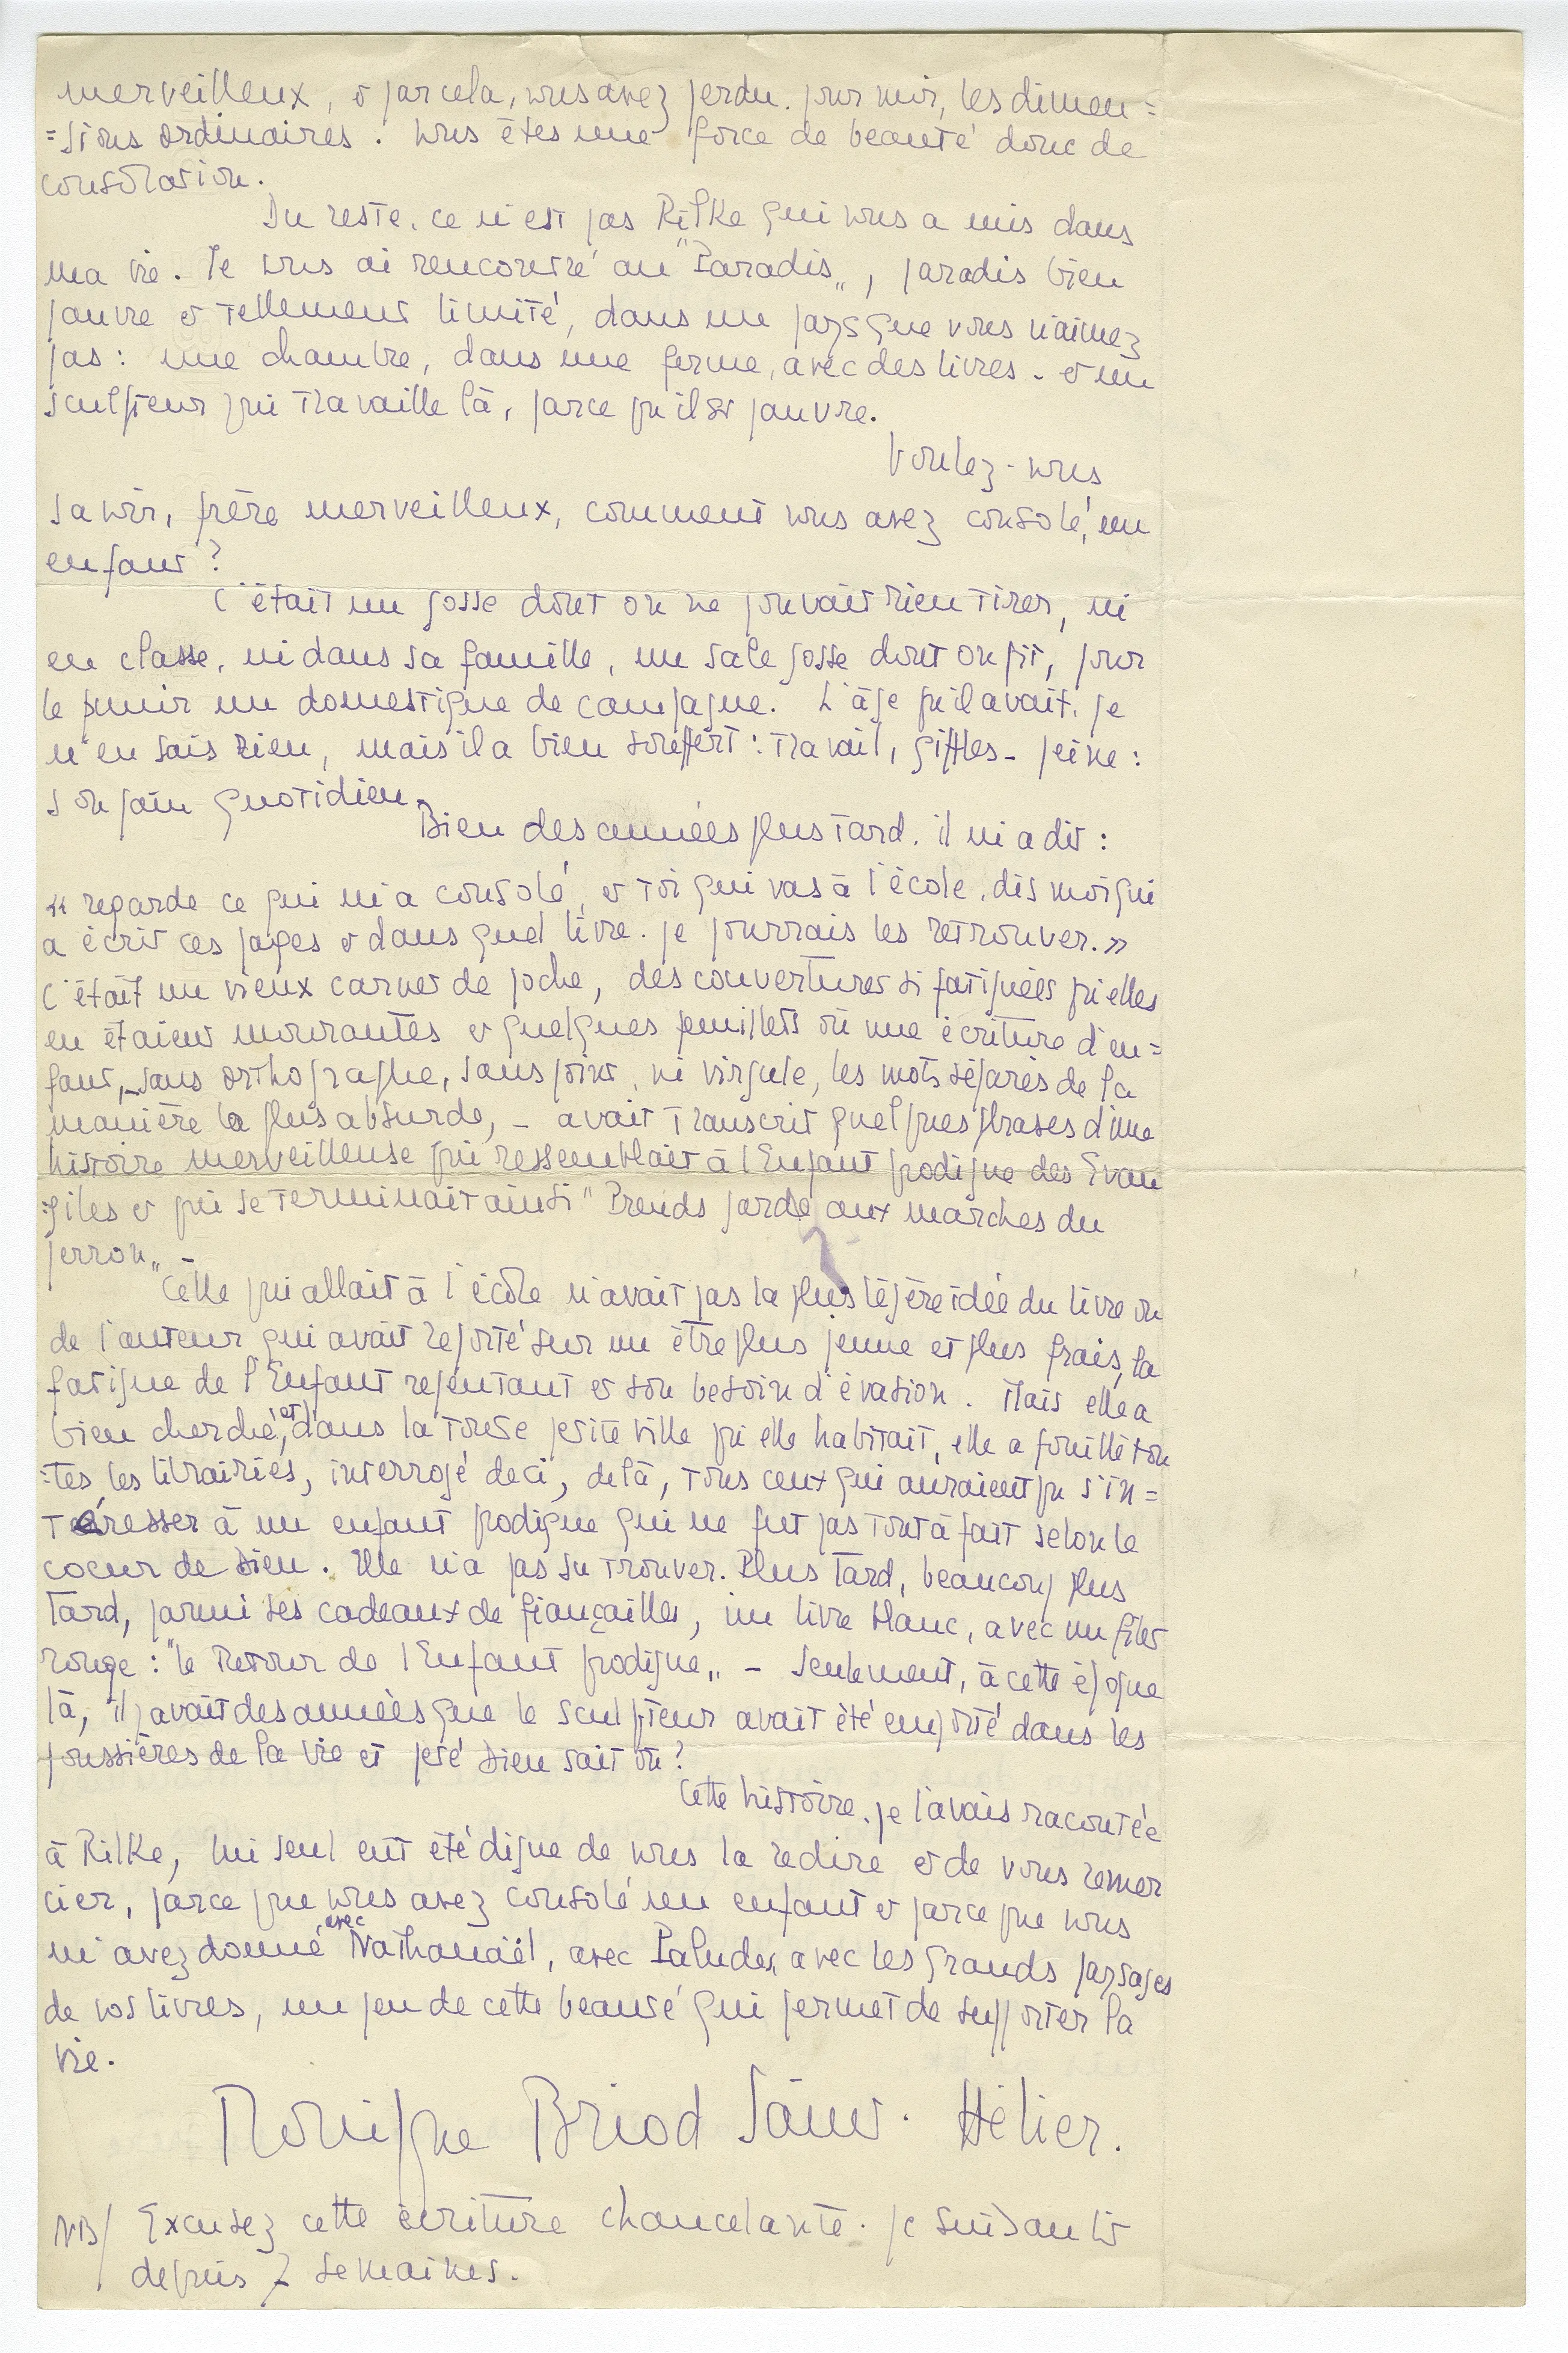 merveilleux, et par cela, vous avez perdu, pour moi, les dimen=
=sions ordinaires. Vous êtes une force de beauté donc de
consolation.
Du reste, ce n'est pas Rilke qui vous a mis dans
ma vie. Je vous ai rencontré au "Paradis„, paradis bien
pauvre et tellement limité, dans un pays que vous n'aimez
pas : une chambre, dans une ferme, avec des livres - et un
sculpteur qui travaille là, parce qu'il est pauvre.
Voulez-vous
savoir, frère merveilleux, comment vous avez consolé, un
enfant ?
C'était un gosse dont on ne pouvait rien tirer, ni
en classe, ni dans sa famille, un sale gosse dont on fit, pour
le punir un domestique de campagne. L'âge qu'il avait, je
n'en sais rien, mais il a bien souffert : travail, giffles - peine :
son pain quotidien.
Bien des années plus tard, il m'a dit :
« regarde ce qui m'a consolé, et toi qui vas à l'école, dis moi qui
a écrit ces pages et dans quel livre je pourrais les retrouver. »
C'était un vieux carnet de poche, des couvertures si fatiguées qu'elles
en étaient mourantes et quelques feuillets où une écriture d'en=
fant, - sans orthographe, sans point, ni virgule, les mots séparés de la
manière la plus absurde, - avait transcrit quelques phrases d'une
histoire merveilleuse qui ressemblait à l'Enfant prodigue des Evan
=giles et qui se terminait ainsi "Prends garde aux marches du
perron„ -
Celle qui allait à l'école n'avait pas la plus légère idée du livre ou
de l'auteur qui avait reporté sur un être plus jeune et plus frais, la
fatigue de l'Enfant repentant et son besoin d'évasion. Mais elle a
bien cherché, et dans la toute petite ville qu'elle habitait, elle a fouillé tou
=tes les librairies, interrogé deci, delà, tous ceux qui auraient pu s'in=
téresser à un enfant prodigue qui ne fut pas tout à fait selon le
coeur de Dieu. Elle n'a pas su trouver. Plus tard, beaucoup plus
tard, parmi ses cadeaux de fiançailles, un livre blanc, avec un filet
rouge : "le Retour de l'Enfant prodigue„ - Seulement, à cette époque
là, il y avait des années que le sculpteur avait été emporté dans les
poussières de la vie et jeté Dieu sait où ?
Cette histoire, je l'avais racontée
à Rilke, lui seul eut été digne de vous la redire et de vous remer
cier, parce que vous avez consolé un enfant et parce que vous
m'avez donné avec Nathanaël, avec Paludes, avec les grands paysages
de vos livres, un peu de cette beauté qui permet de supporter la
vie.
Monique Briod Saint-Hélier.
NB/ Excusez cette écriture chancelante. Je suis au lit
depuis 7 semaines.